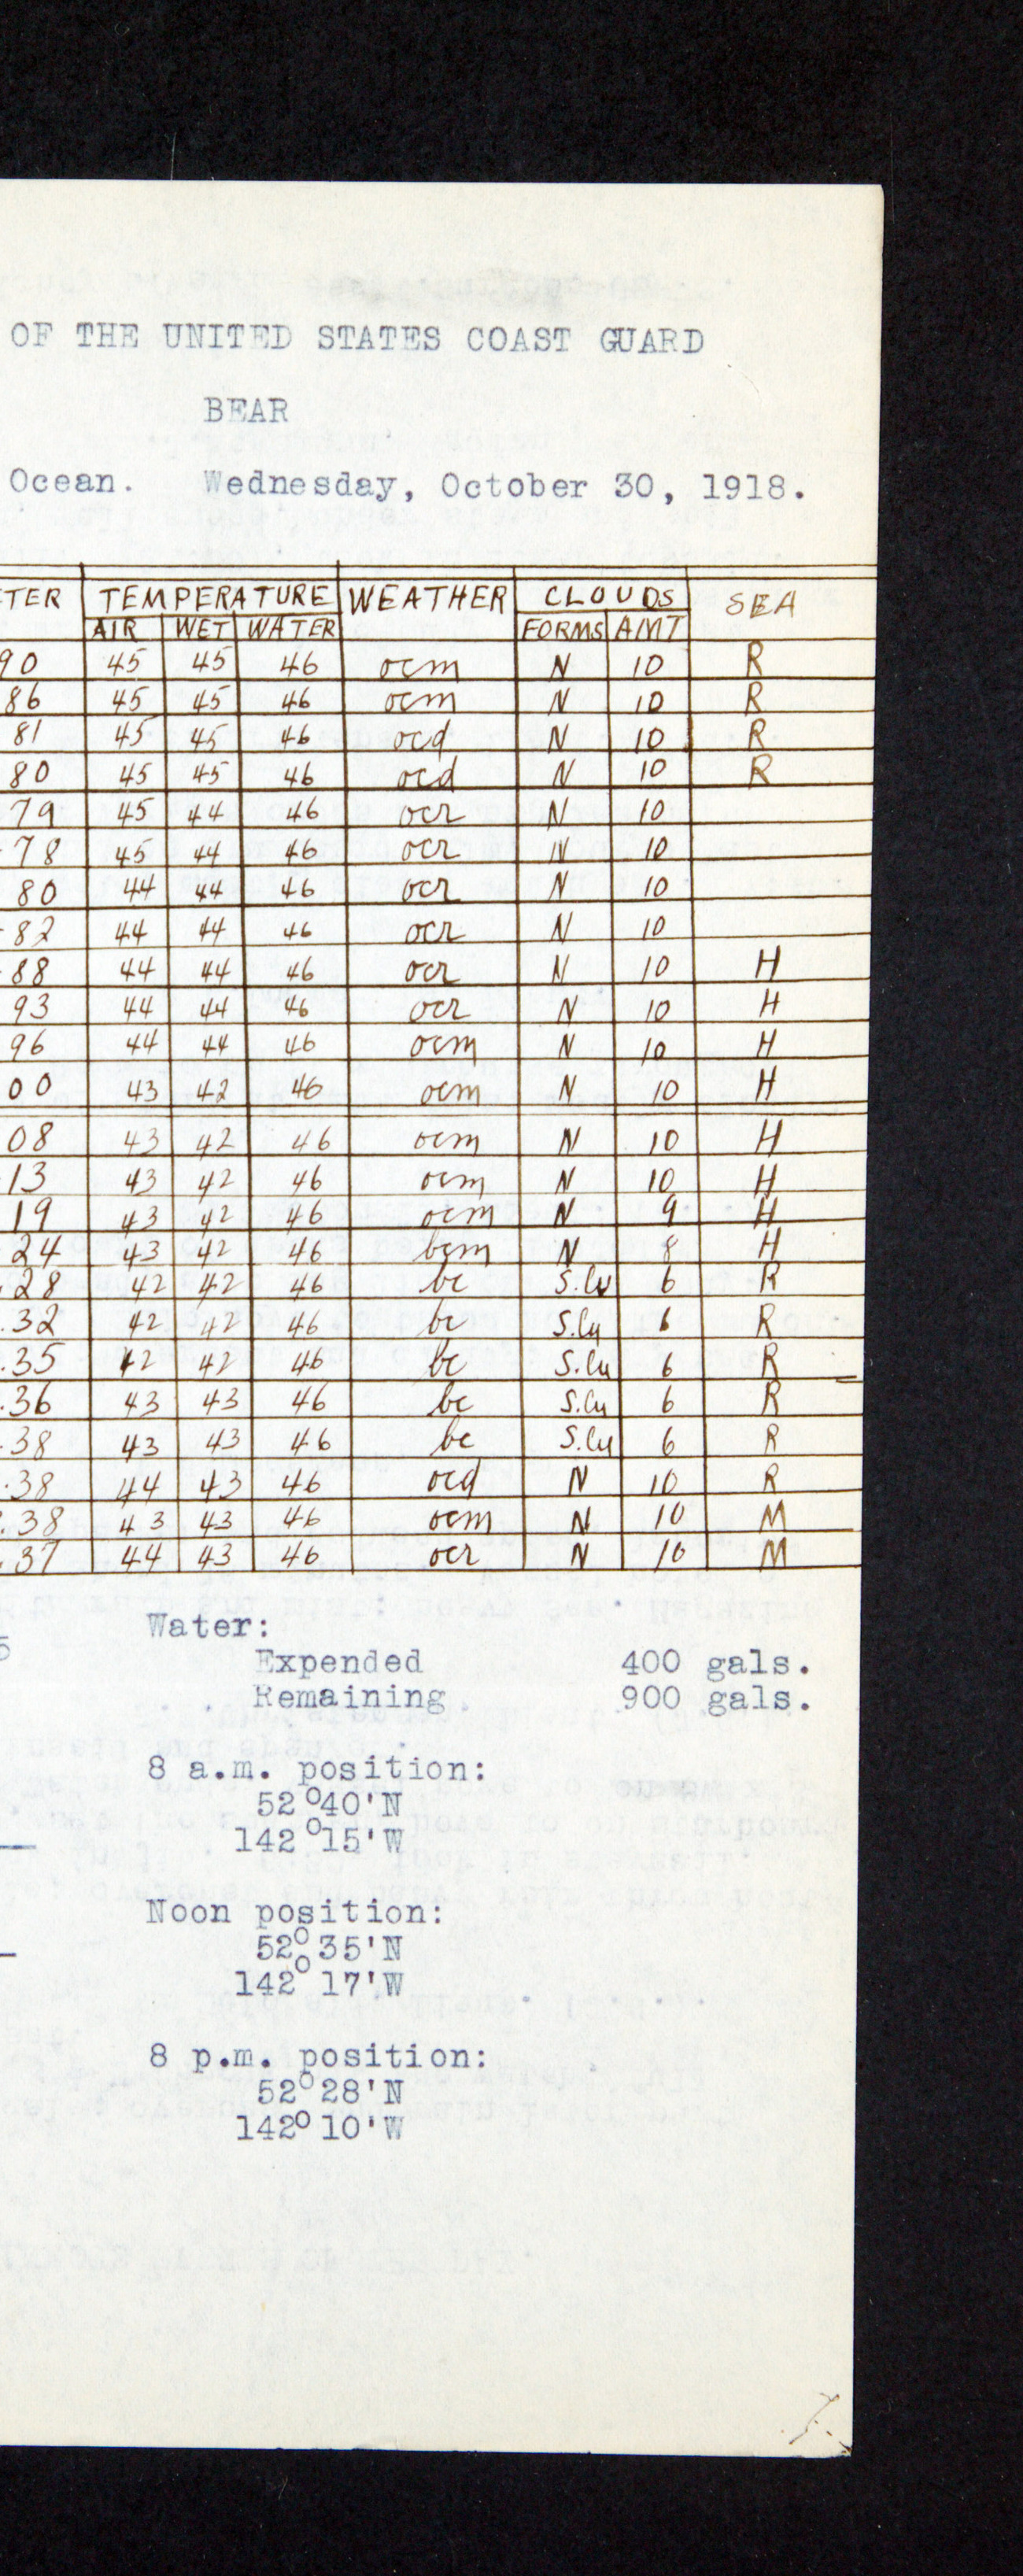 OF THE UNITED STATES COAST GUARD
BEAR
Ocean. Wednesday, October 30, 1918.
TER TEMPERATURE WEATHER CLOUDS SEA
AIR WET WATER FORMS AMT
90 45 45 46 ocm N 10 R
86 45 45 46 ocm N 10 R
81 45 45 46 ocd N 10 R
80 45 45 46 ocd N 10 R
79 45 44 46 ocr N 10
78 45 44 46 ocr N 10
80 44 44 46 ocr N 10
82 44 44 46 ocr N 10
88 44 44 46 ocr N 10 H
93 44 44 46 ocr N 10 H
96 44 44 46 ocm N 10 H
00 43 42 46 ocm N 10 H
08 43 42 46 ocm N 10 H
13 43 42 46 ocm N 10 H
19 43 42 46 ocm N 9 H
24 43 42 46 bcm N 8 H
.28 42 42 46 bc S.Cu 6 R
.32 42 42 46 bc S.Cu 6 R
.35 42 42 46 bc S.Cu 6 R
.36 43 43 46 bc S.Cu 6 R
.38 43 43 46 bc S.Cu 6 R
.38 44 43 46 ocd N 10 R
.38 43 43 46 ocm N 10 M
.37 44 43 46 ocr N 10 M
5 Water:
Expended 400 gals.
Remaining 900 gals.
8 a.m. position:
52°40'N
142°15'W
Noon position:
52°35'N
142°17'W
8 p.m. position:
52°28'N
142°10'W